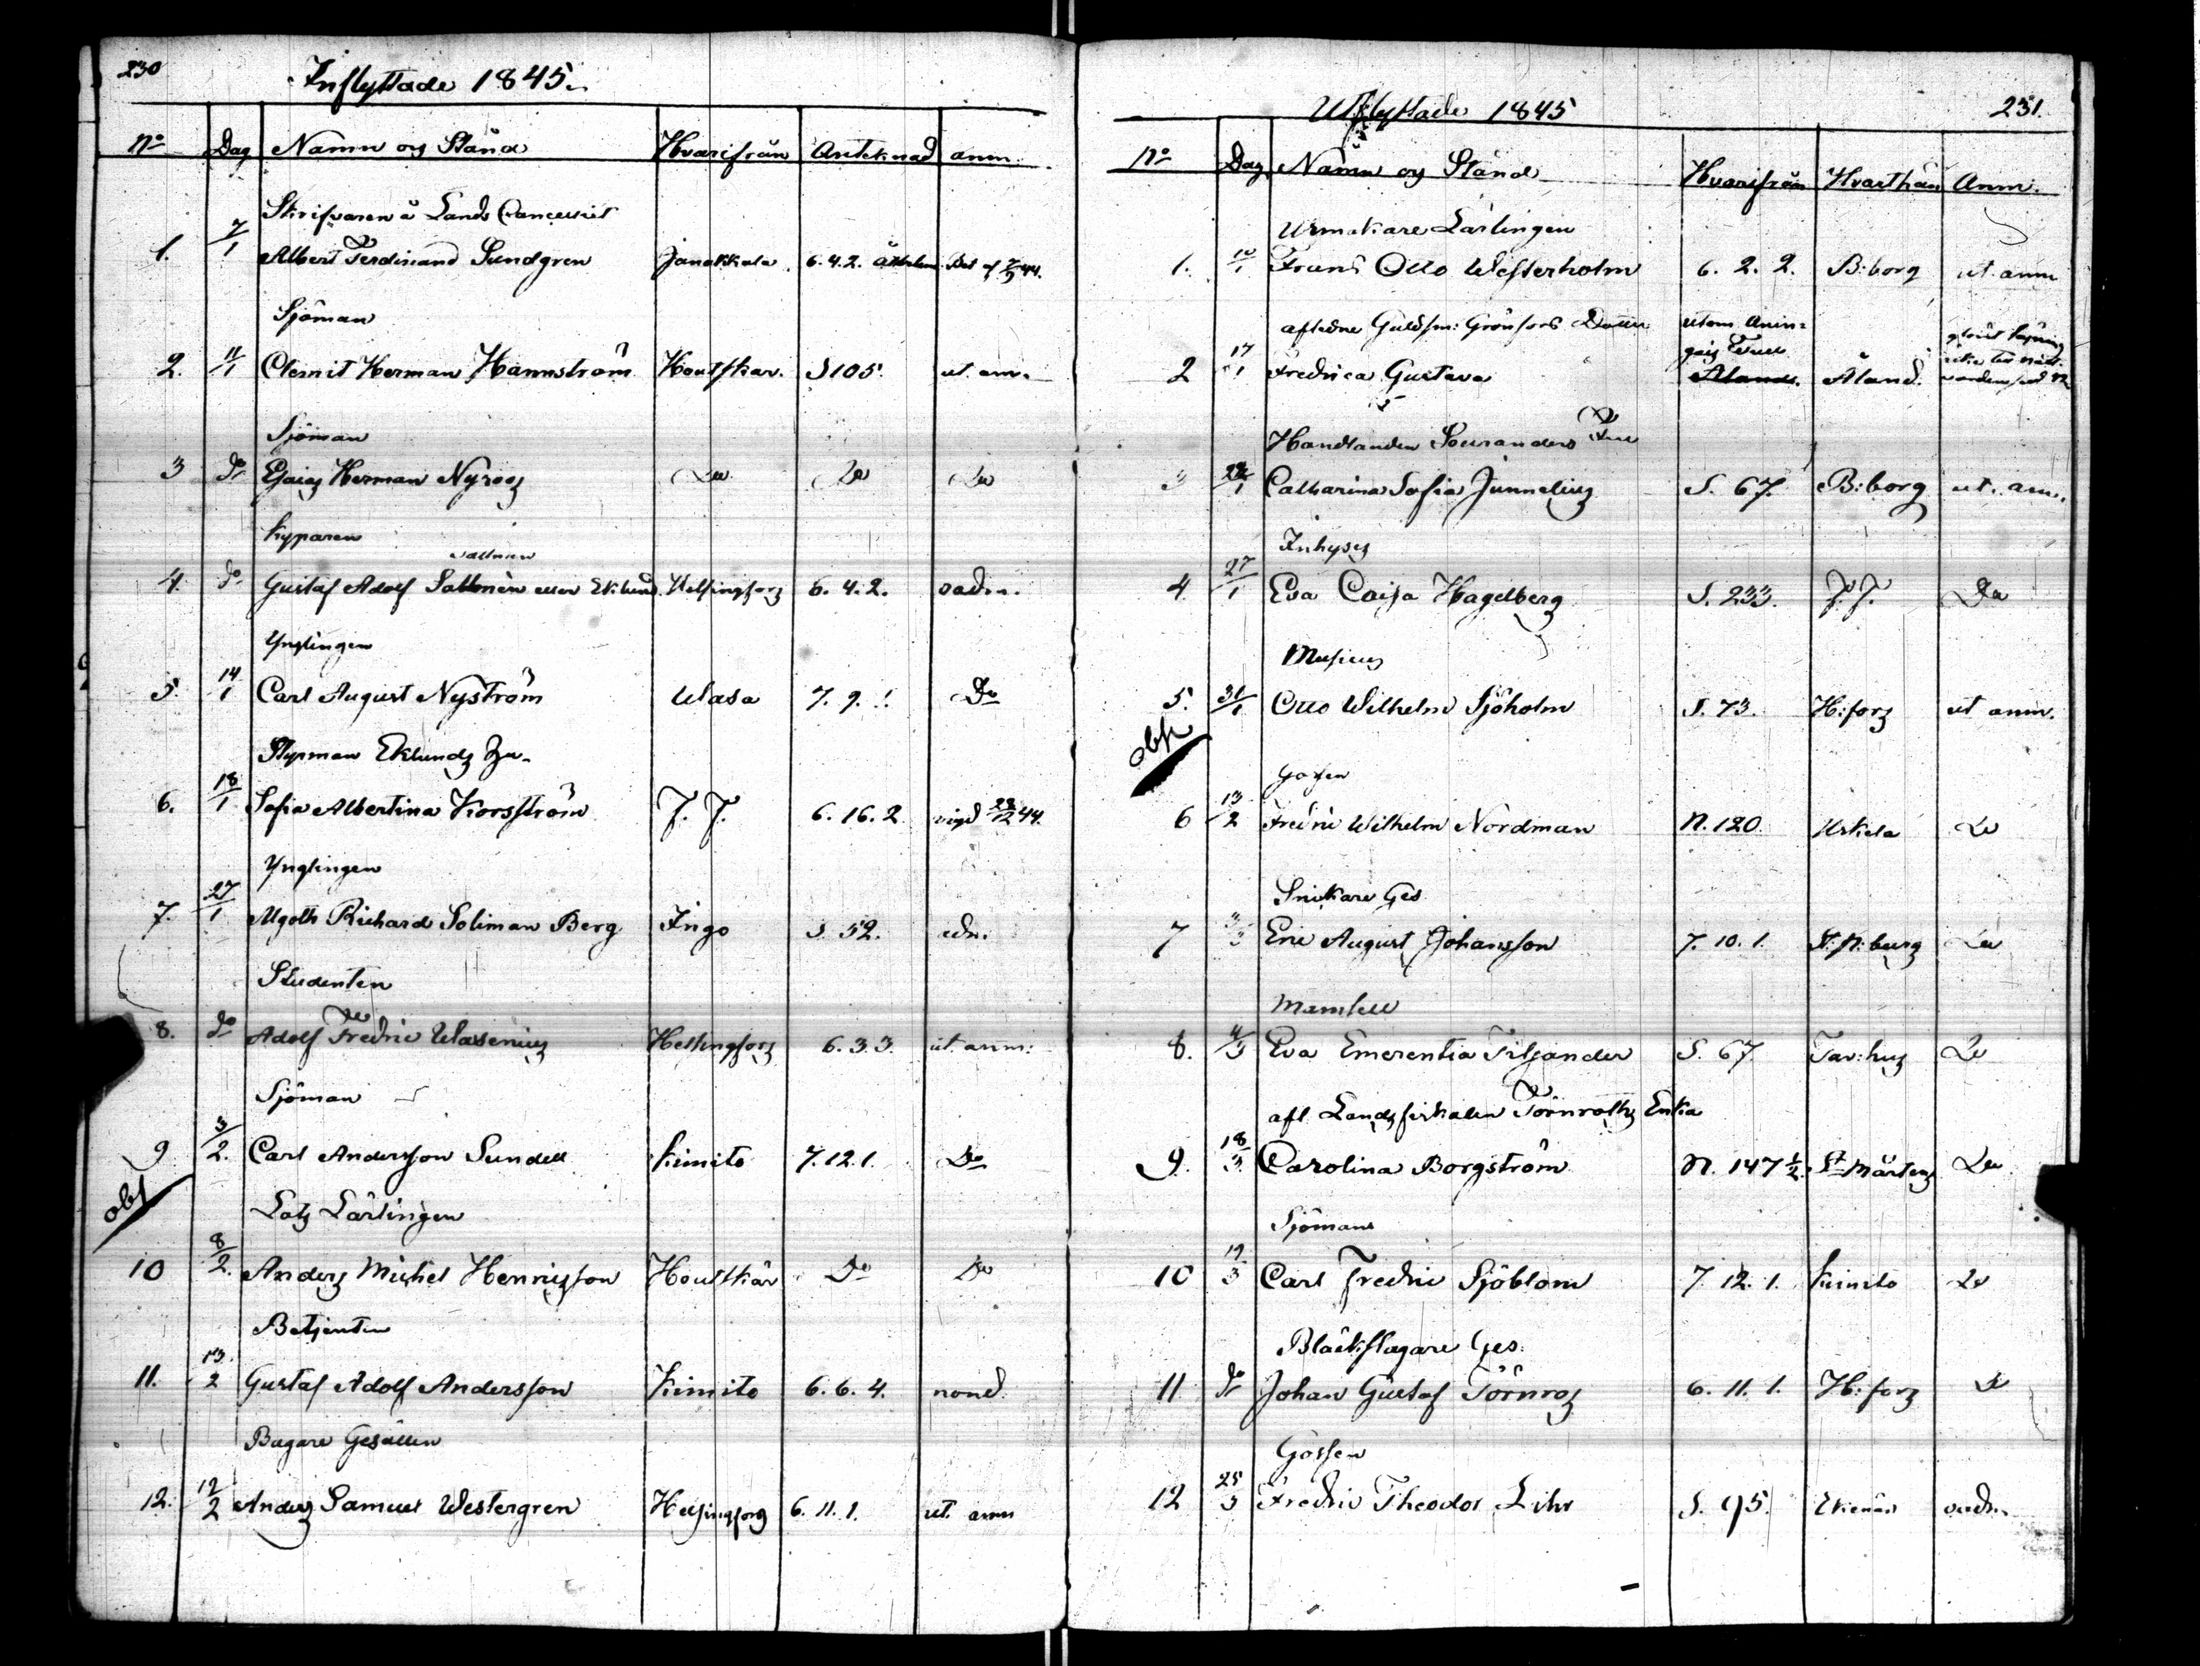 230
Inflyttade 1845.
No Dag Namn og Stånd Hvarifrån Anteknad anm.
Skrifvaren å Lands Cancelliet
1. 7/1 Albert Ferdinand Sundgren Janakkala 6.4.2.
Sjöman
2. 11/1 Herman Hannström Houtskar. S 105. ut. an.
Sjöman
3 do Esaias Herman Nyroos Do Do Do
Kyparen
4. do Gustaf Adolf Sallonen eller Eklund Helsingfors 6. 4. 2.
Ynglingen
5. 14/1 Carl August Nyström Wasa 7. 9. 1. Do
Styrman Eklunds hu.
6. 18/1 Sofia Albertina Korsström J. J. 6. 16. 2 vigd 28/12 44.
Ynglingen
7. 27/1 Richard Soliman Berg Ingo S. 52.
Studenten
8. do Adolf Fredric Wasenius Helsingfors 6. 3 3. ut. anm:
Sjöman
9 3/2. Carl Andersson Sundell Kimito 7. 12. 1. Do
obs
Lots Lärlingen
10 8/2. Anders Michel Henricsson Houtskär Do Do
Betjenten
11. 13/2 Gustaf Adolf Andersson Kimito 6. 6. 4.
Bagare Gesällen
12. 19/2 Anders Samuel Westergren Helsingfors 6. 11. 1. ut. anm
231.
Utflyttade 1845
No Dag Namn og Stånd Hvarifrån Hvarthän Anm.
Urmakare Lärlingen
1. 10/1 Frans Otto Westerholm 6. 2. 2. B:borg ut. anm
afledne Guldsm: Grönfors Dotter utom Anin=
gais Tull
2 17/1 Fredrica Gustava Åland.
Handlanden Souranders Fru
3 22/1 Catharina Sofia Junnelius S. 67. B:borg ut. an.
Inhyses
4 27/1 Eva Caisa Hagelberg S. 233. J. J. Do
Musicus
5. 31/1 Otto Wilhelm Sjöholm S. 73. H:fors ut anm.
obs
Gossen
6 13/2 Fredric Wilhelm Nordman N. 120. Uskela Do
Snickare Ges
7 3/3 Eric August Johansson 7. 10. 1. St. P:burg Do
Mamsell
8. 4/3 Eva Emerentia Tiljander S. 67 Tav:hus Do
afl Landsfiskalen Törnroths Enka
9. 18/3 Carolina Borgström N. 147 1/2. St Mårtens Do
Sjöman
10 19/3 Carl Fredric Sjöblom 7. 12. 1. Kimito Do
Bläckslagare Ges.
11 do Johan Gustaf Törnros 6. 11. 1. H:fors Do
Gossen
12 25/3 Fredric Theodor Lihr S. 95. Ekenäs